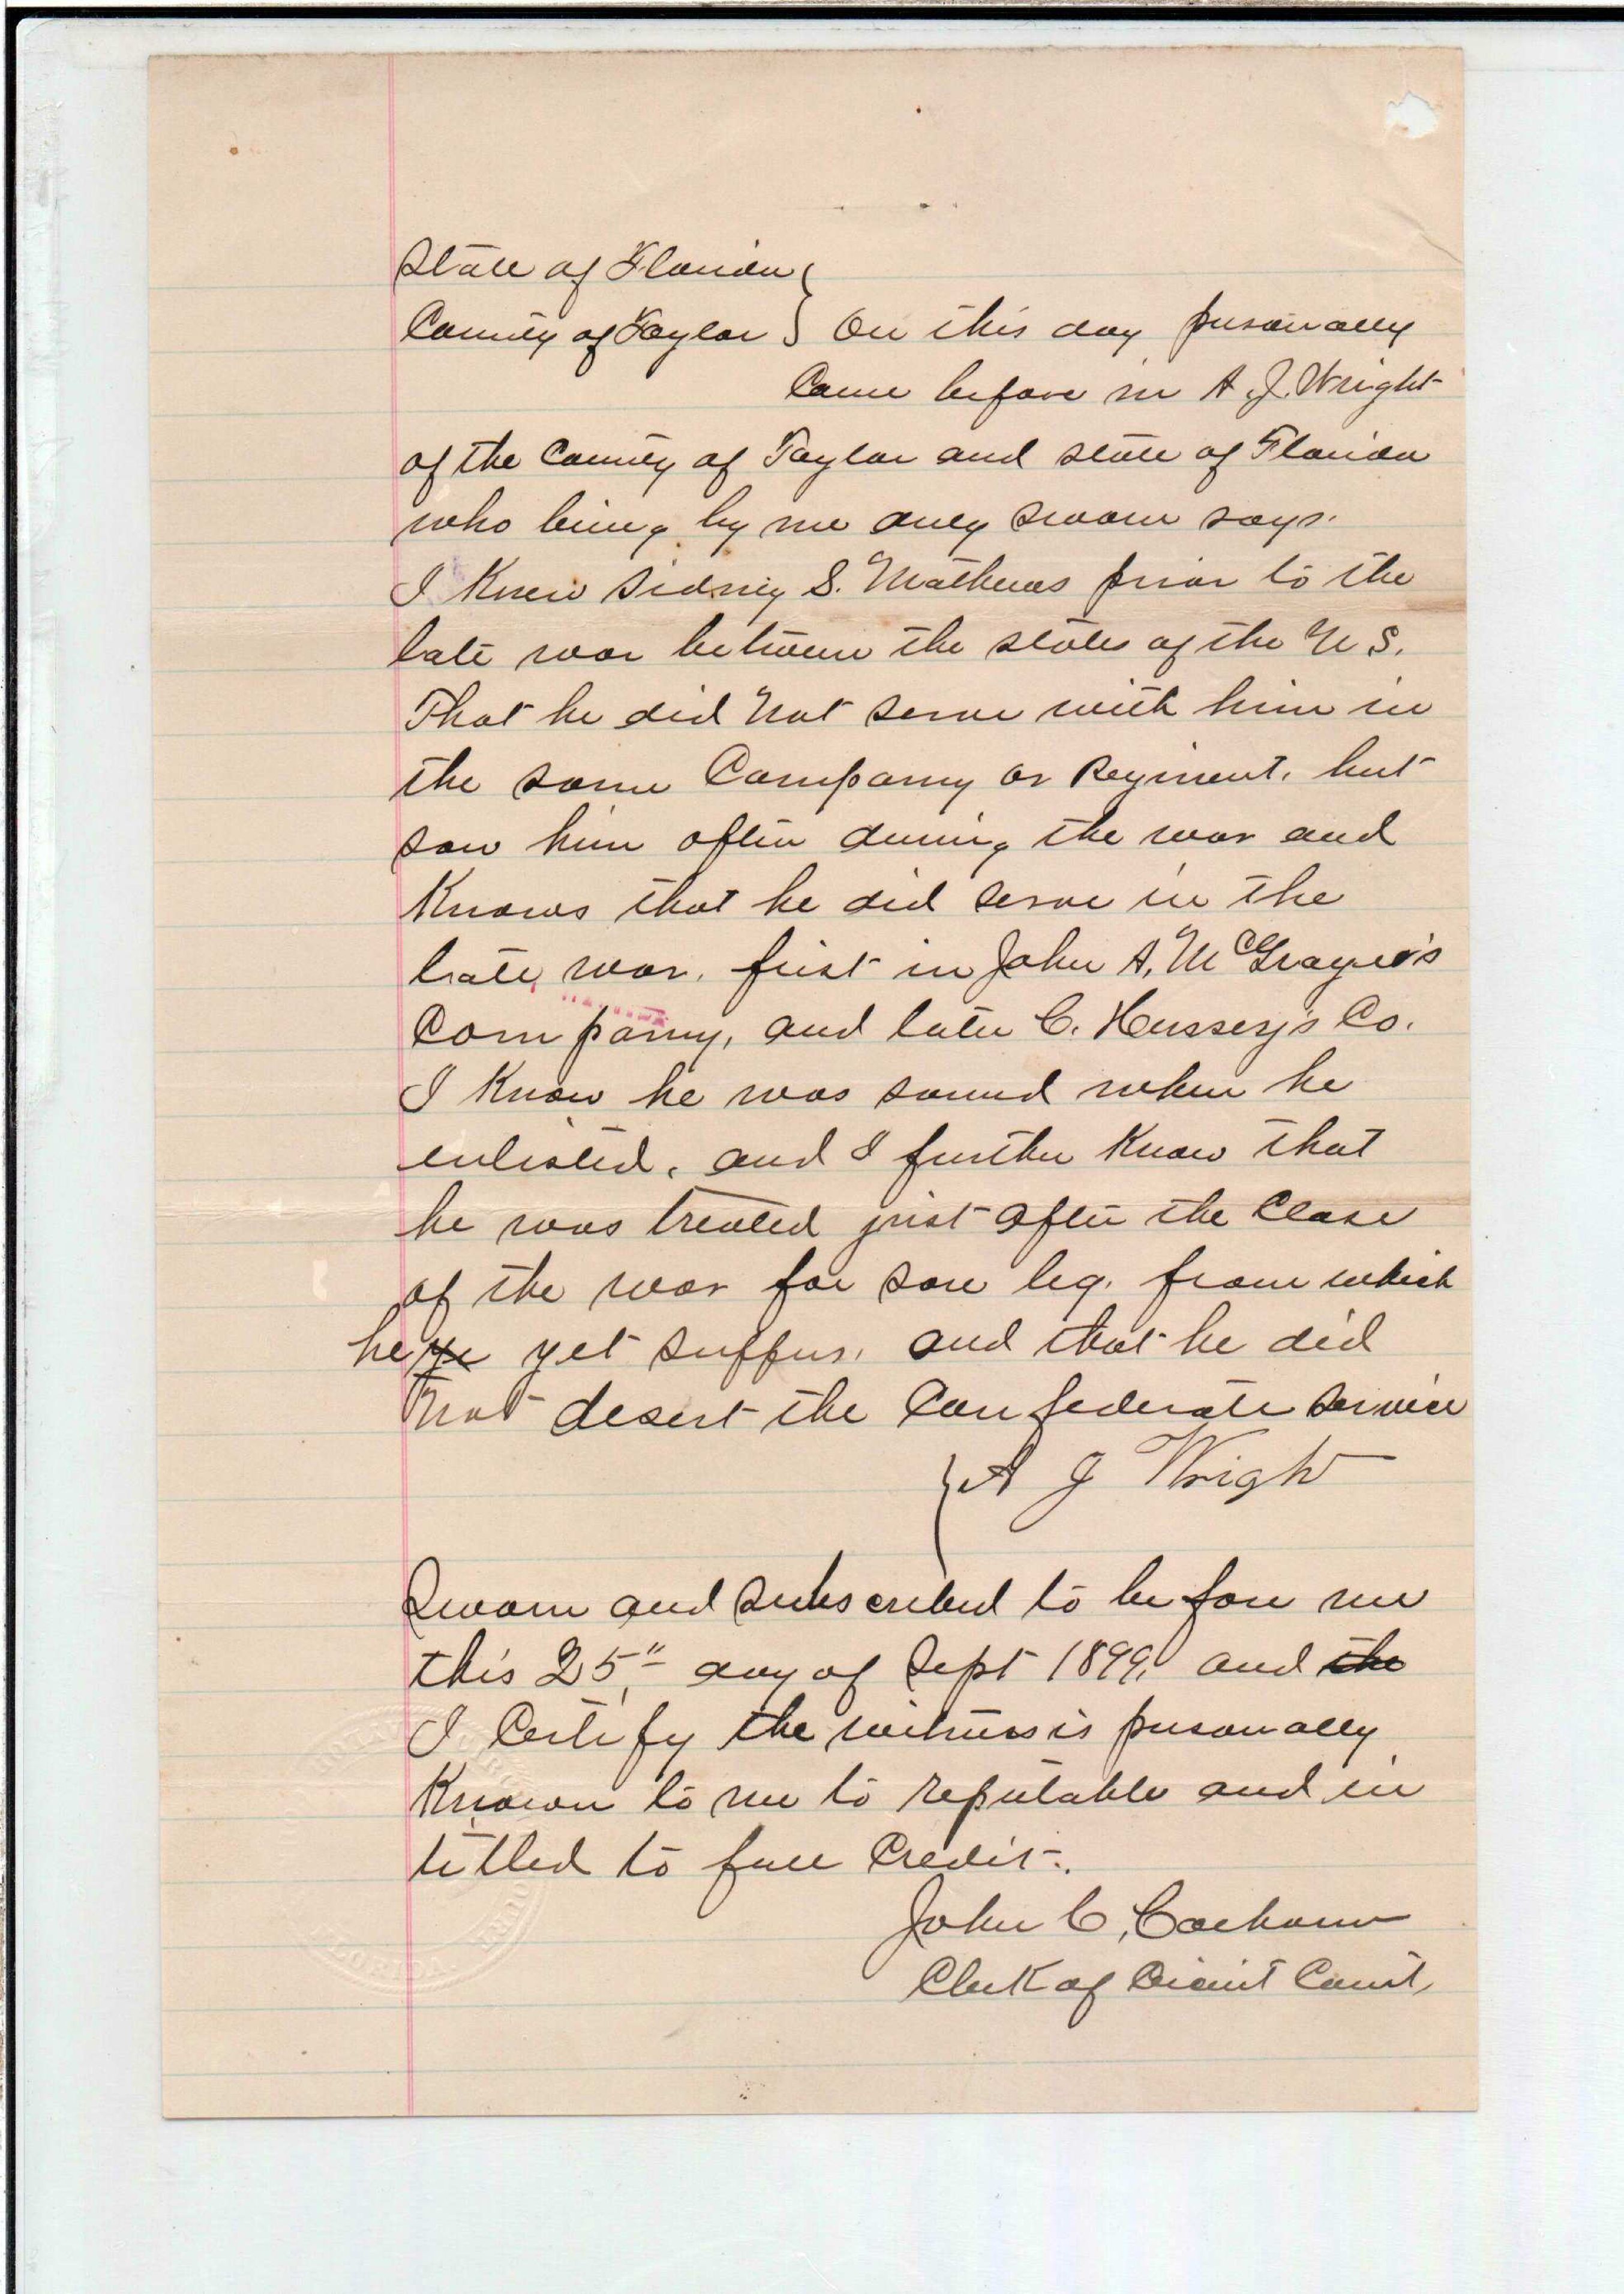 State of Florida
County of Taylor } On this day personally
Came before me A. J. Wright
of the County of Taylor and state of Florida
who being by me duly sworn says.
I Knew Sidney S. Mathews prior to the
late war between the states of the U S.
That he did Not serve with him in
the same Company or Regiment, but
saw him often during the war and
Knows that he did serve in the
late war. first in John A. Mc
Company, and later C. Hussey's Co.
I Know he was sound when he
enlisted. and I further Know that
he was treated just after the Close
of the war for sore leg. from which
he yet suffers. and that he did
Not desert the Confederate service
A J Wright
Sworn and subscribed to before me
this 25" day of Sept 1899. and the
I Certify the witness is personally
Known to me to reputable and in
titled to full Credit.
John C. Calhoun
Clerk of Circuit Court,
FLORIDA